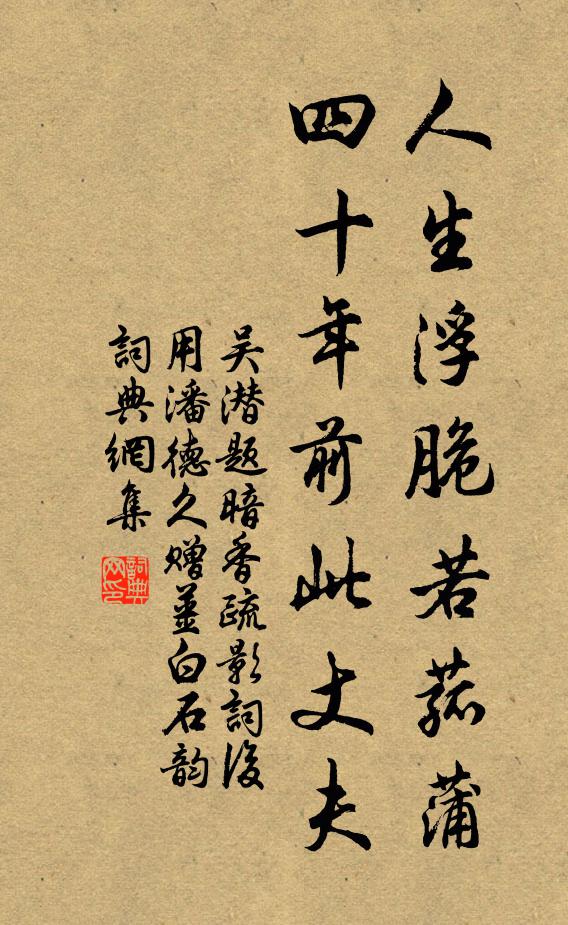 人生浮脆若菰蒲
四十年前此丈夫
吴潜题暗香疏影詞後
用潘德久赠姜白石韵
詞典網集
詞典網印